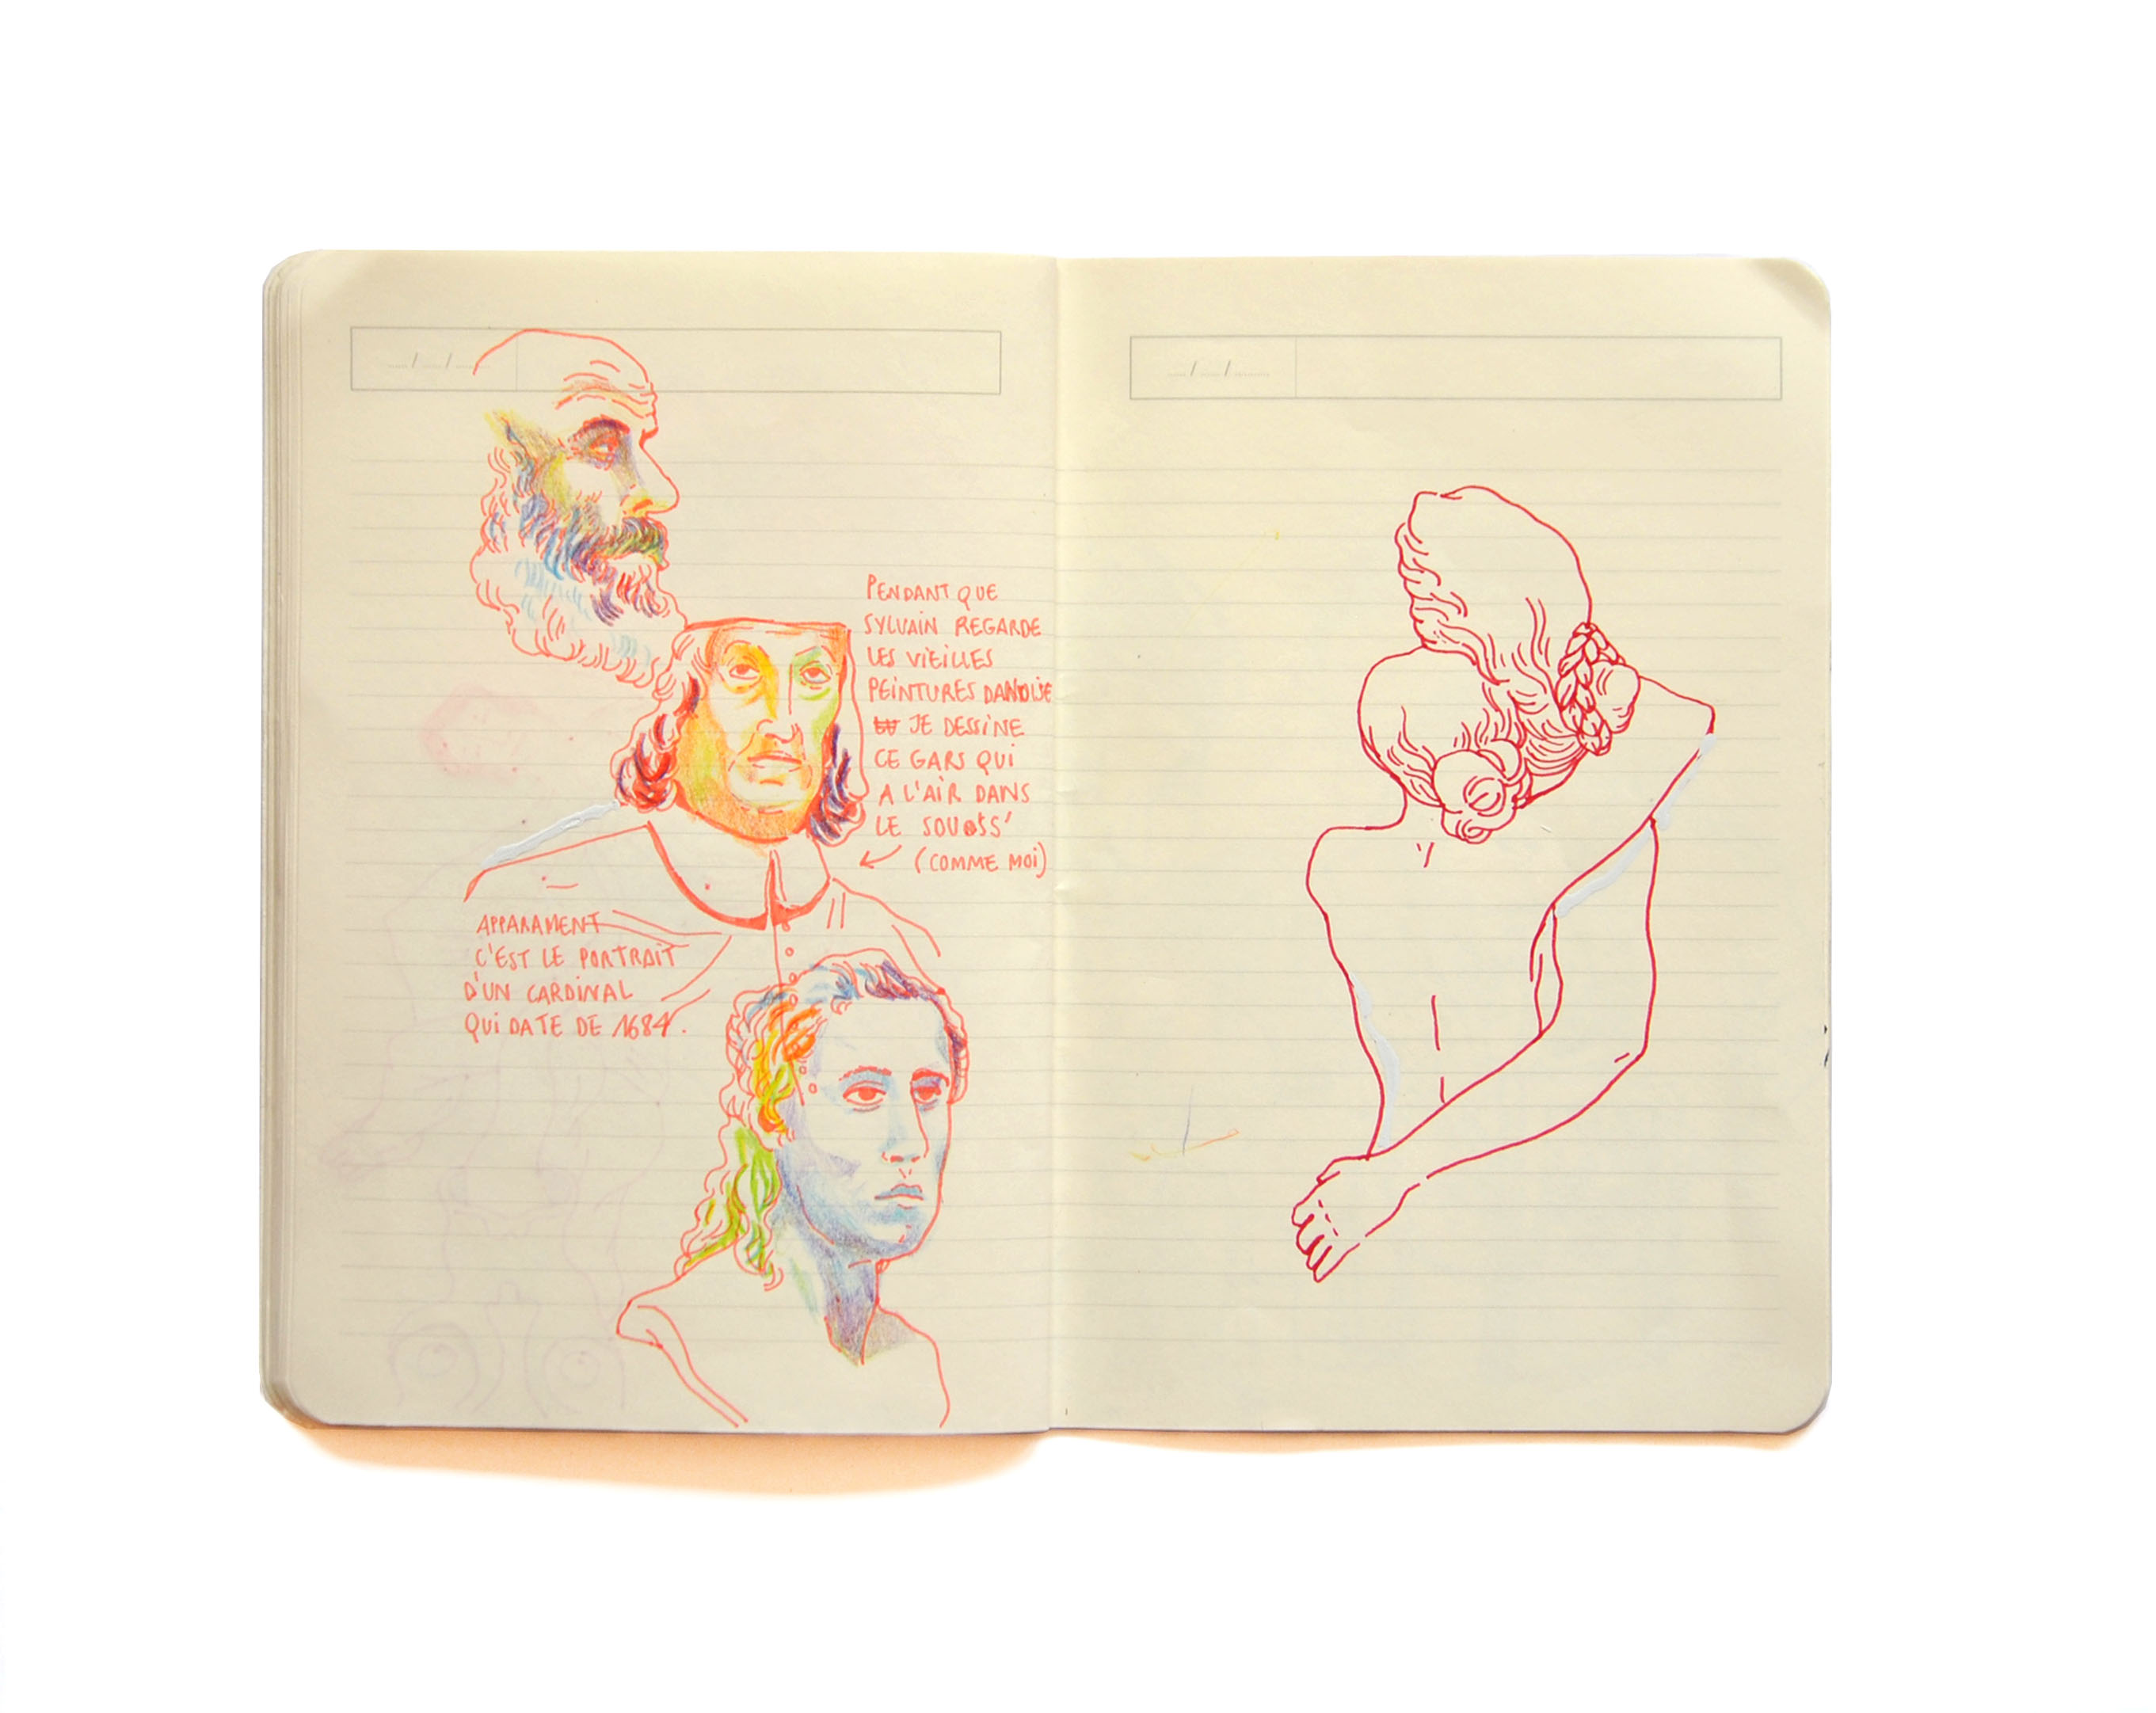 PENDANT QUE
SYLVAIN REGARDE
LES VIEILLES
PEINTURES
JE DESSINE
CE GARS QUI
A L'AIR DANS
LE SOUOSS'
(COMME MOI)
APPARAMENT
C'EST LE PORTRAIT
D'UN CARDINAL
QUI DATE DE 1684.